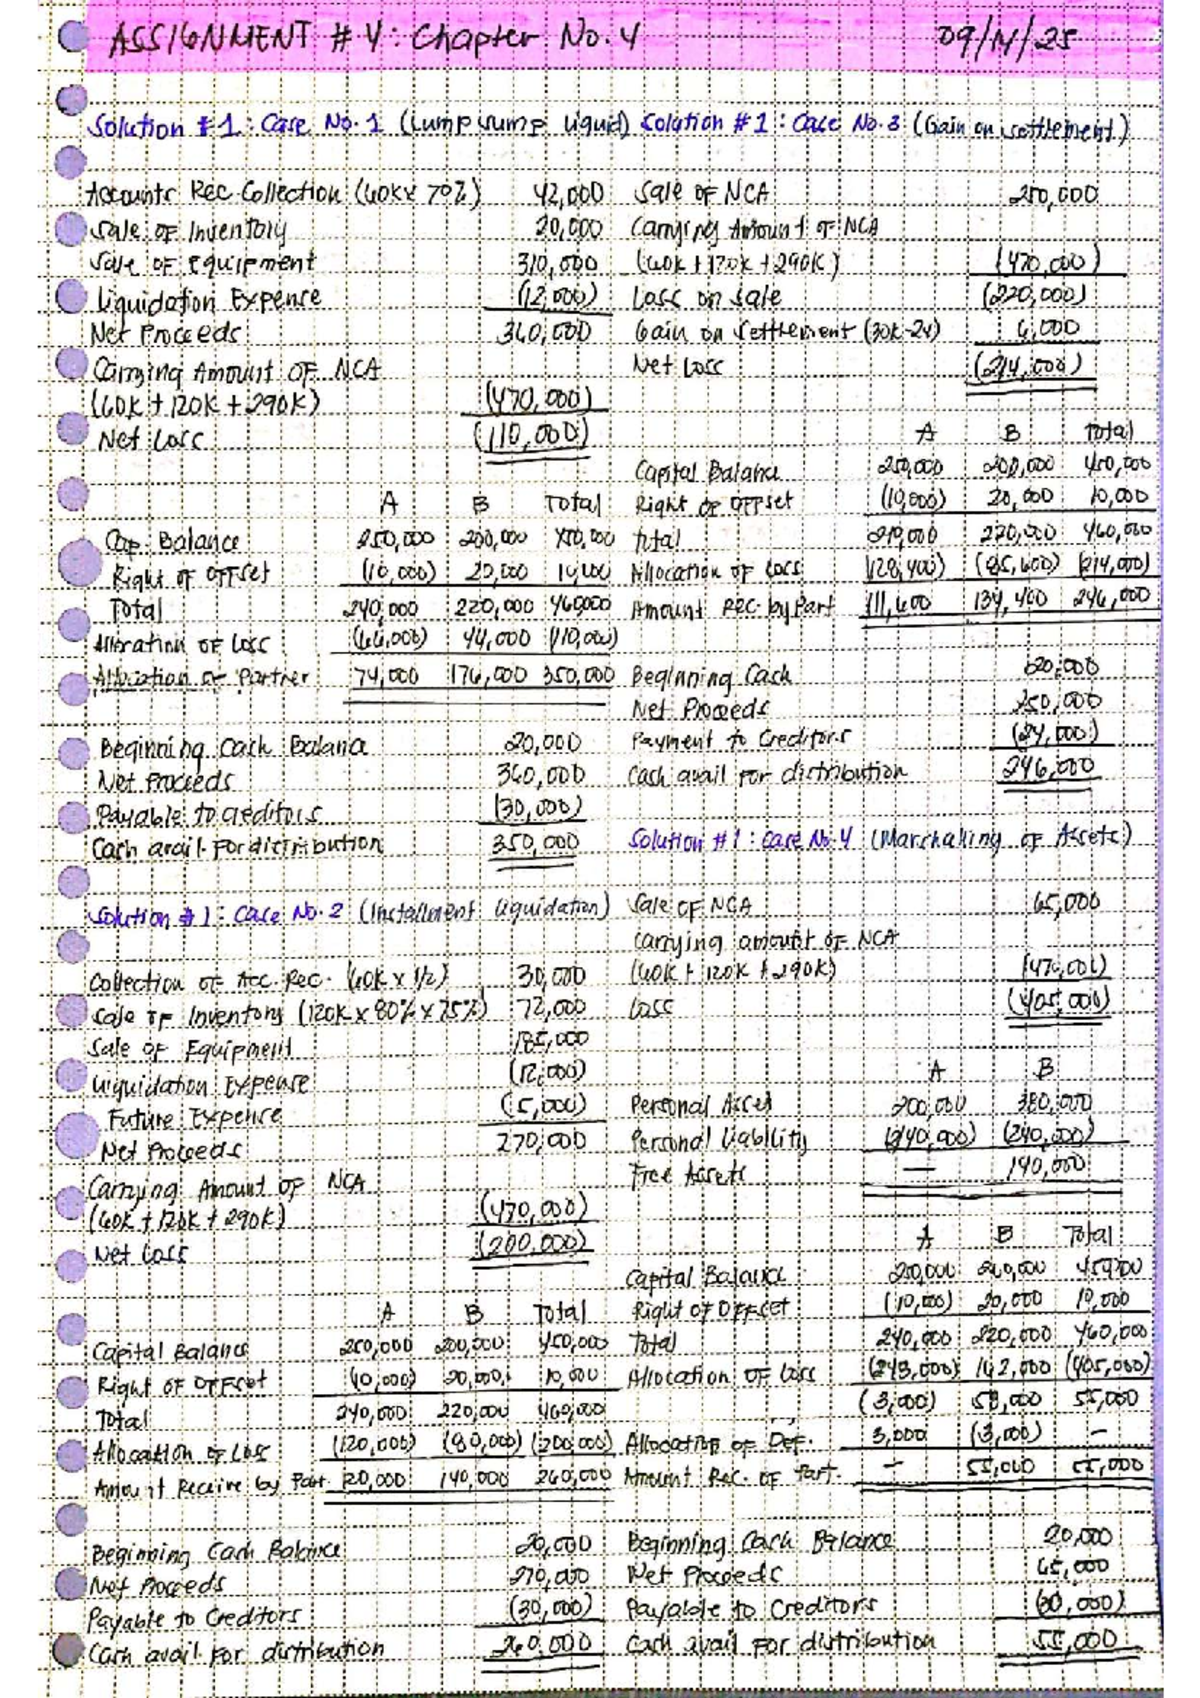 ASSIGNMENT # 4: Chapter No. 4 09/14/25
Solution #1: Case No. 1 (Lumpsump Liquid)
Accounts Rec. Collection (60K x 70%) 42,000
Sale of Inventory 20,000
Sale of equipment 310,000
Liquidation Expense (12,000)
Net Proceeds 360,000
Carrying Amount of NCA
(60K + 120K + 290K) (470,000)
Net Loss (110,000)
A B Total
Cap. Balance 250,000 200,000 450,000
Right of Offset (10,000) 20,000 10,000
Total 240,000 220,000 460,000
Allocation of Loss (66,000) 44,000 (110,000)
Allocation of Partner 174,000 176,000 350,000
Beginning Cash Balance 20,000
Net Proceeds 360,000
Payable to creditors (30,000)
Cash avail. For distribution 350,000
Solution #1: Case No. 2 (Installment Liquidation)
Collection of Acc. Rec. (60K x 1/2) 30,000
Sale of Inventory (120K x 80% x 75%) 72,000
Sale of Equipment 185,000
Liquidation Expense (12,000)
Future Expence (5,000)
Net Proceeds 270,000
Carrying Amount of NCA
(60K + 120K + 290K) (470,000)
Net Loss (200,000)
A B Total
Capital Balance 250,000 200,000 450,000
Right of Offset (10,000) 20,000 10,000
Total 240,000 220,000 460,000
Allocation of Loss (120,000) (80,000) (200,000)
Amount Receive by Part. 120,000 140,000 260,000
Beginning Cash Balance 20,000
Net Proceeds 270,000
Payable to Creditors (30,000)
Cash avail. For distribution 260,000
Solution #1: Case No. 3 (Gain on settlement)
Sale of NCA 250,000
Carrying Amount of NCA
(60K + 120K + 290K) (470,000)
Loss on sale (220,000)
Gain on Settlement (30K-24) 6,000
Net Loss (214,000)
A B Total
Capital Balance 250,000 200,000 450,000
Right of Offset (10,000) 20,000 10,000
Total 240,000 220,000 460,000
Allocation of Loss (128,400) (85,600) (214,000)
Amount Rec. by Part 111,600 134,400 246,000
Beginning Cash 20,000
Net Proceeds 250,000
Payment to Creditors (24,000)
Cash avail for distribution 246,000
Solution #1: Case No. 4 (Marshaking of Assets)
Sale of NCA 65,000
Carrying amount of NCA
(60K + 120K + 290K) (470,000)
Loss (405,000)
A B
Personal Asset 200,000 380,000
Personal Liability (240,000) (240,000)
Free Assets — 140,000
A B Total
Capital Balance 250,000 200,000 450,000
Right of Offset (10,000) 20,000 10,000
Total 240,000 220,000 460,000
Allocation of Loss (243,000) 162,000 (405,000)
(3,000) 58,000 55,000
Allocation of Def. 3,000 (3,000) —
Amount Rec. of Part. — 55,000 55,000
Beginning Cash Balance 20,000
Net Proceeds 65,000
Payable to Creditors (30,000)
Cash avail for distribution 55,000